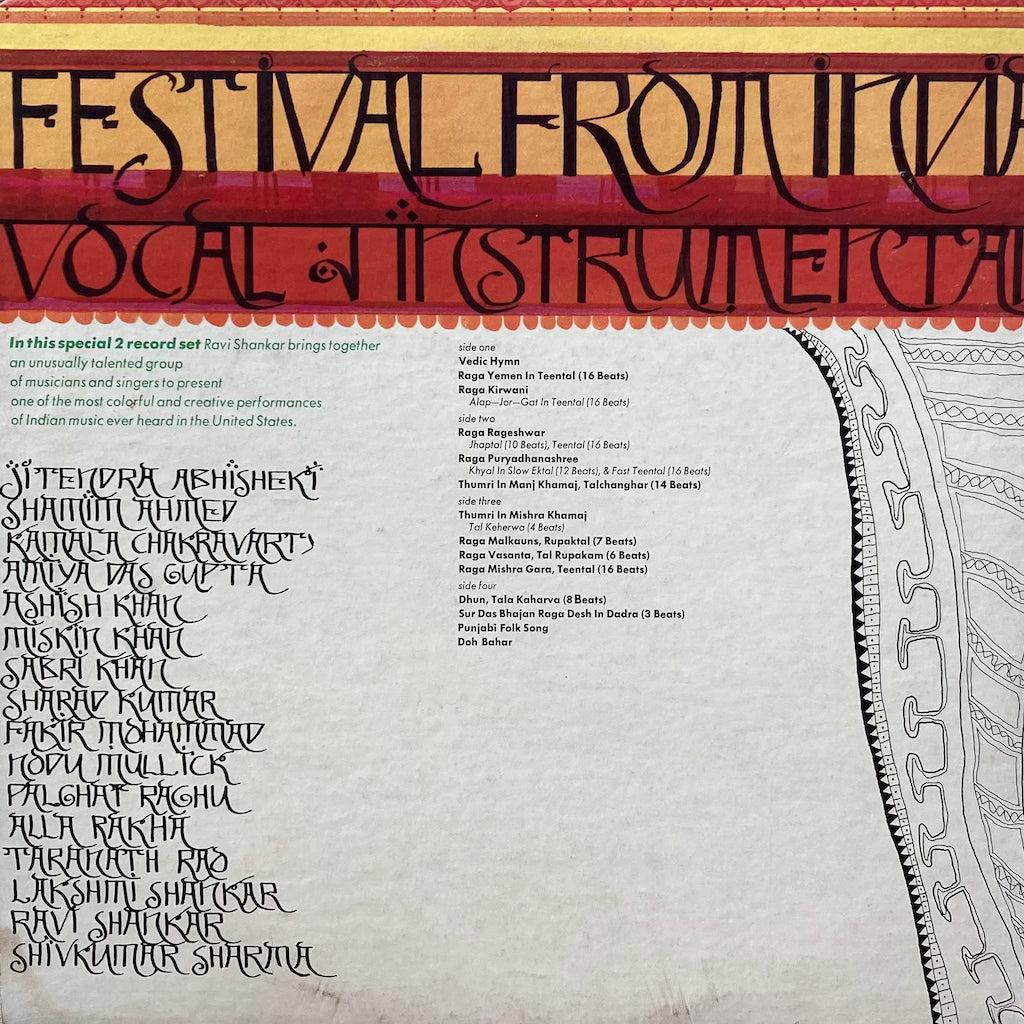 FESTIVAL FROM INDIA
VOCAL & INSTRUMENTAL
In this special 2 record set Ravi Shankar brings together
an unusually talented group
of musicians and singers to present
one of the most colorful and creative performances
of Indian music ever heard in the United States.
JITENDRA ABHISHEKI
SHAMIM AHMED
KAMALA CHAKRAVARTY
AMIYA DAS GUPTA
ASHISH KHAN
MISKIN KHAN
SABRI KHAN
SHARAD KUMAR
FAKIR MOHAMMAD
NODU MULLICK
PALGHAT RAGHU
ALLA RAKHA
TARANATH RAO
LAKSHMI SHANKAR
RAVI SHANKAR
SHIVKUMAR SHARMA
side one
Vedic Hymn
Raga Yemen In Teental (16 Beats)
Raga Kirwani
Alap—Jor—Gat In Teental (16 Beats)
side two
Raga Rageshwar
Jhaptal (10 Beats), Teental (16 Beats)
Raga Puryadhanashree
Khyal In Slow Ektal (12 Beats), & Fast Teental (16 Beats)
Thumri In Manj Khamaj, Talchanghar (14 Beats)
side three
Thumri In Mishra Khamaj
Tal Keherwa (4 Beats)
Raga Malkauns, Rupaktal (7 Beats)
Raga Vasanta, Tal Rupakam (6 Beats)
Raga Mishra Gara, Teental (16 Beats)
side four
Dhun, Tala Kaharva (8 Beats)
Sur Das Bhajan Raga Desh In Dadra (3 Beats)
Punjabi Folk Song
Doh Bahar